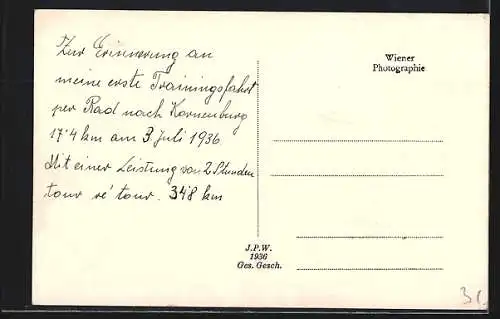 Zur Erinnerung an
meine erste Trainingsfahrt
per Rad nach Korneuburg
17·4 km am 3. Juli 1936
Mit einer Leistung von 2 Stunden
tour re´ tour. 34·8 km
Wiener
Photographie
J.P.W.
1936
Ges. Gesch.